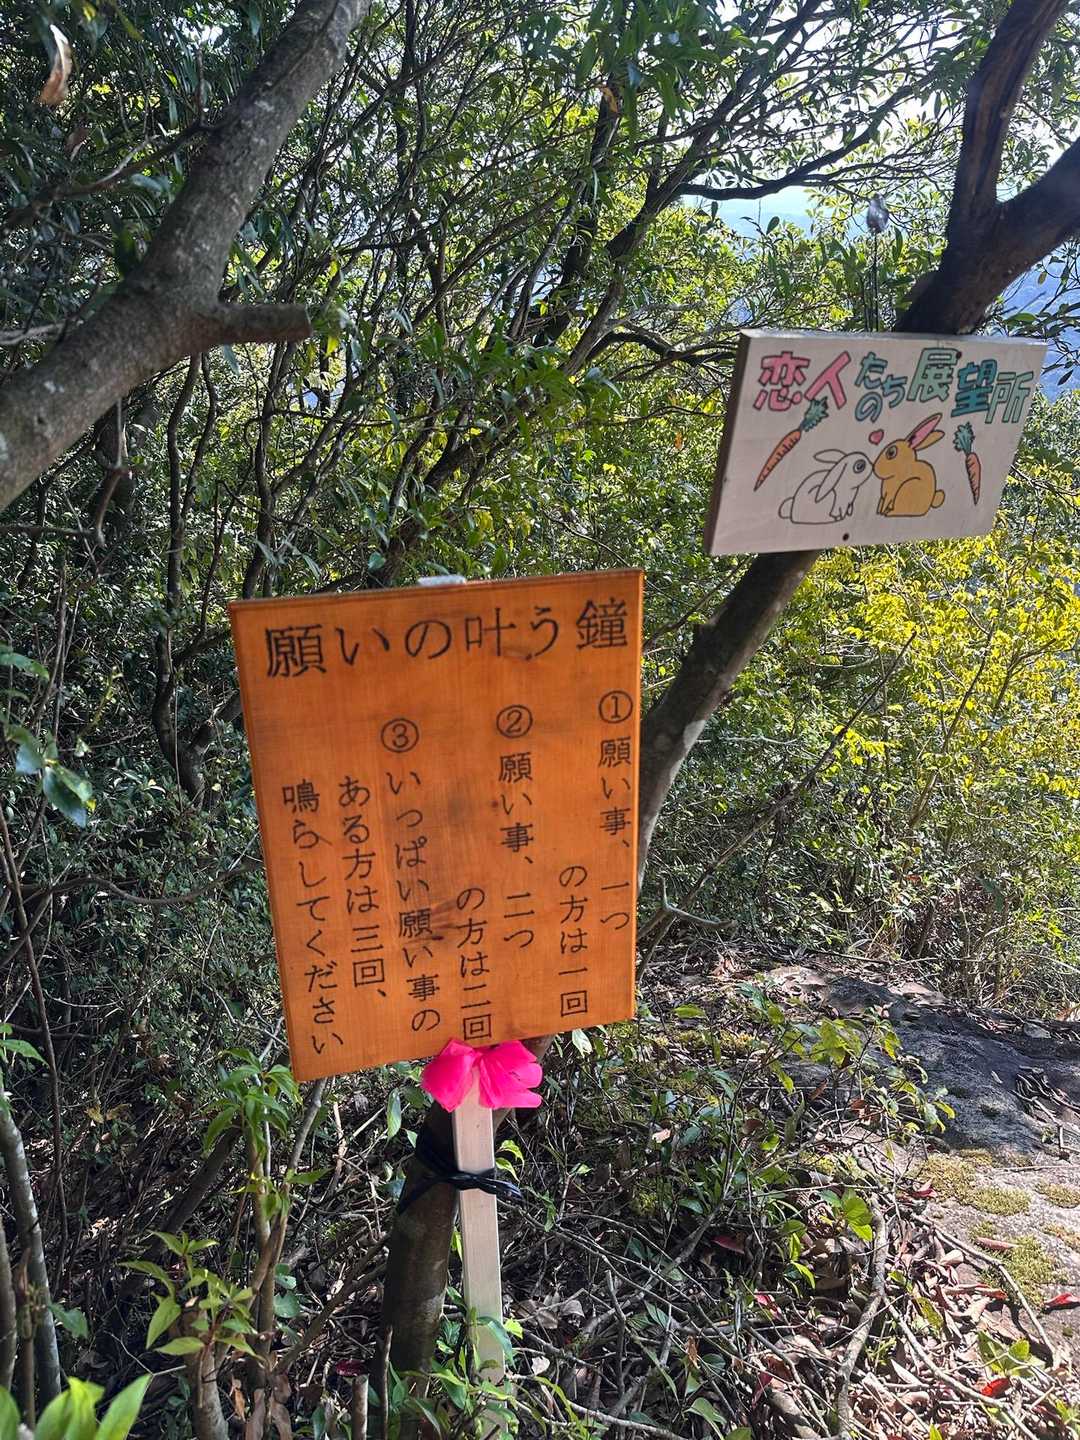 恋人たちの展望所
願いの叶う鐘
①願い事、一つ
の方は一回
②願い事、二つ
の方は二回
③いっぱい願い事の
ある方は三回、
鳴らしてください